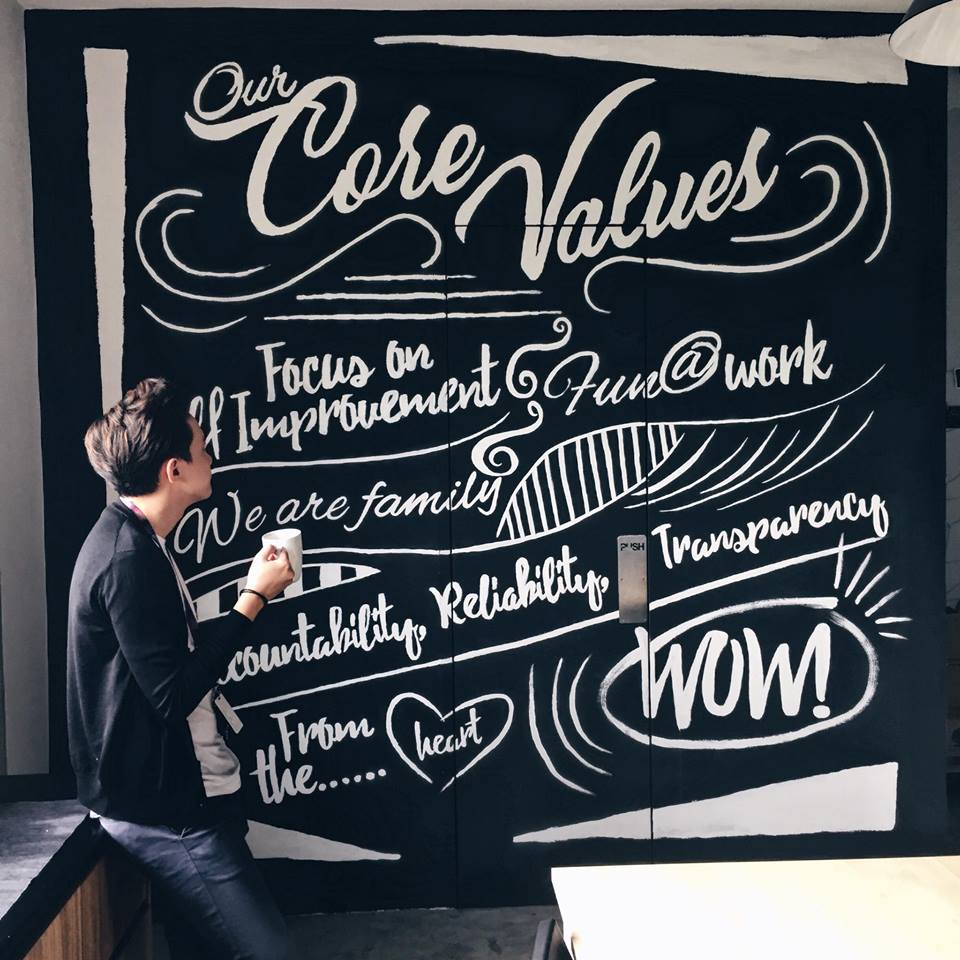 Our
Core Values
Focus on
lf Improvement
Fun@work
We are family
PUSH
countability, Reliability, Transparency
From
the......
heart
WOW!